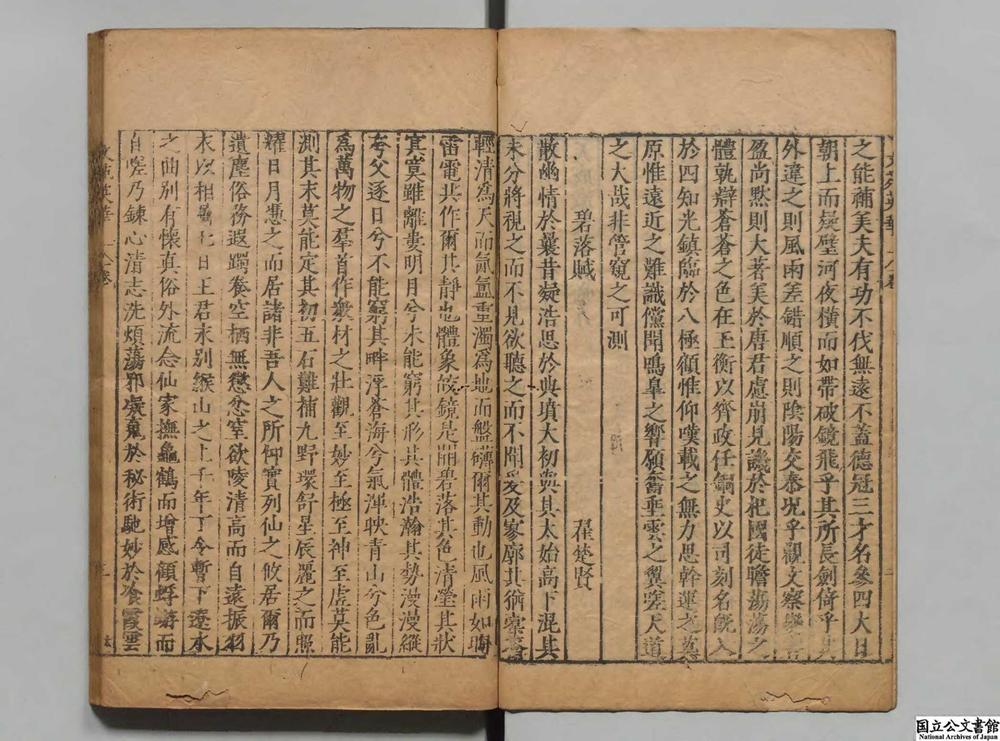 之能補美夫有功不伐無遠不蓋德冠三才名參四大日
朝上而疑璧河夜橫而如帶破鏡飛乎其所長劍倚乎其
外違之則風雨差錯順之則陰陽交泰況乎觀文察
盈尚黙則大著美於唐君慮崩見譏於杞國徒瞻蕩蕩之
體孰辯蒼蒼之色在玉衡以齊政任銅史以司刻名旣入
於四知光鎮臨於八極顧惟仰嘆載之無力思幹運之
原惟遠近之難識儻聞鳴皋之響願奮垂雲之翼嗟天道
之大哉非管窺之可測
碧落賦 翟楚賢
散幽情於曩昔凝浩思於典墳大初與其太始高下混其
未分將視之而不見欲聽之而不聞爰及寥廓其猶
輕清爲天而氤氳重濁爲地而盤礴爾其動也風雨如晦
雷電共作爾其靜也體象皎鏡是開碧落其色清瑩其狀
冥寞雖離婁明目兮未能窮其形其體浩瀚其勢漫漫縱
夸父逐日兮不能窮其畔浮滄海兮氣渾映青山兮色亂
爲萬物之羣首作衆材之壯觀至妙至極至神至虛莫能
測其末莫能定其初五石難補九野環舒星辰麗之而照
耀日月憑之而居諸非吾人之所仰實列仙之攸居爾乃
遺塵俗務遐躅養空栖無懲忿窒欲陵清高而自遠振羽
衣以相 七日王君永別緱山之上千年丁令暫下遼水
之曲別有懷真俗外流念仙家撫龜鶴而增感顧蜉蝣而
自嗟乃鍊心清志洗煩蕩邪凝魂於秘術馳妙於飡霞雲
文苑英華 八卷
国立公文書館
National Archives of Japan